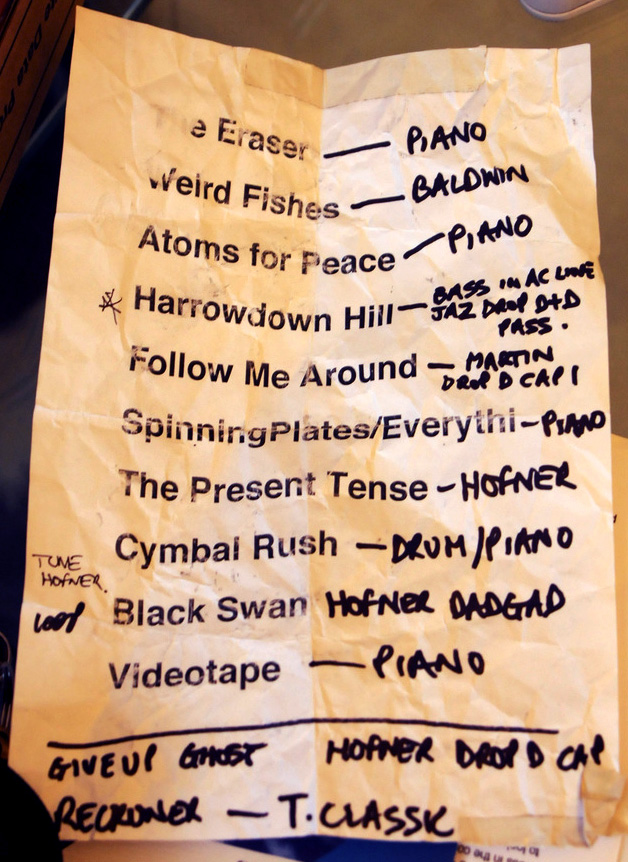 The Eraser — PIANO
Weird Fishes — BALDWIN
Atoms for Peace — PIANO
Harrowdown Hill — BASS IN AC LINE
JAZ DROP D+D
PASS.
Follow Me Around — MARTIN
DROP D CAP 1
SpinningPlates/Everythi - PIANO
The Present Tense - HOFNER
Cymbal Rush — DRUM/PIANO
TUNE
HOFNER.
LOOP Black Swan HOFNER DADGAD
Videotape — PIANO
GIVE UP GHOST HOFNER DROP D CAP
RECKONER — T. CLASSIC